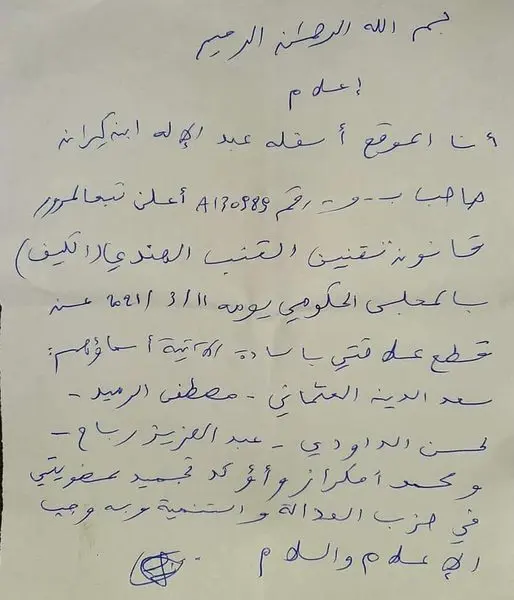 بسم الله الرحمان الرحيم
إعلام
أنا الموقع أسفله عبد الإله ابن كيران
صاحب ب-و- رقم A130989 أعلن تبعا لمرور
قانون تقنين القنب الهندي (الكيف)
بالمجلس الحكومي يومه 11/3/2021 عن
قطع علاقتي بالسادة الآتية أسماؤهم:
سعد الدين العثماني - مصطفى الرميد -
لحسن الداودي - عبد العزيز رباح -
و محمد أمكراز وأؤكد تجميد عضويتي
في حزب العدالة والتنمية وبه وجب
الإعلام والسلام